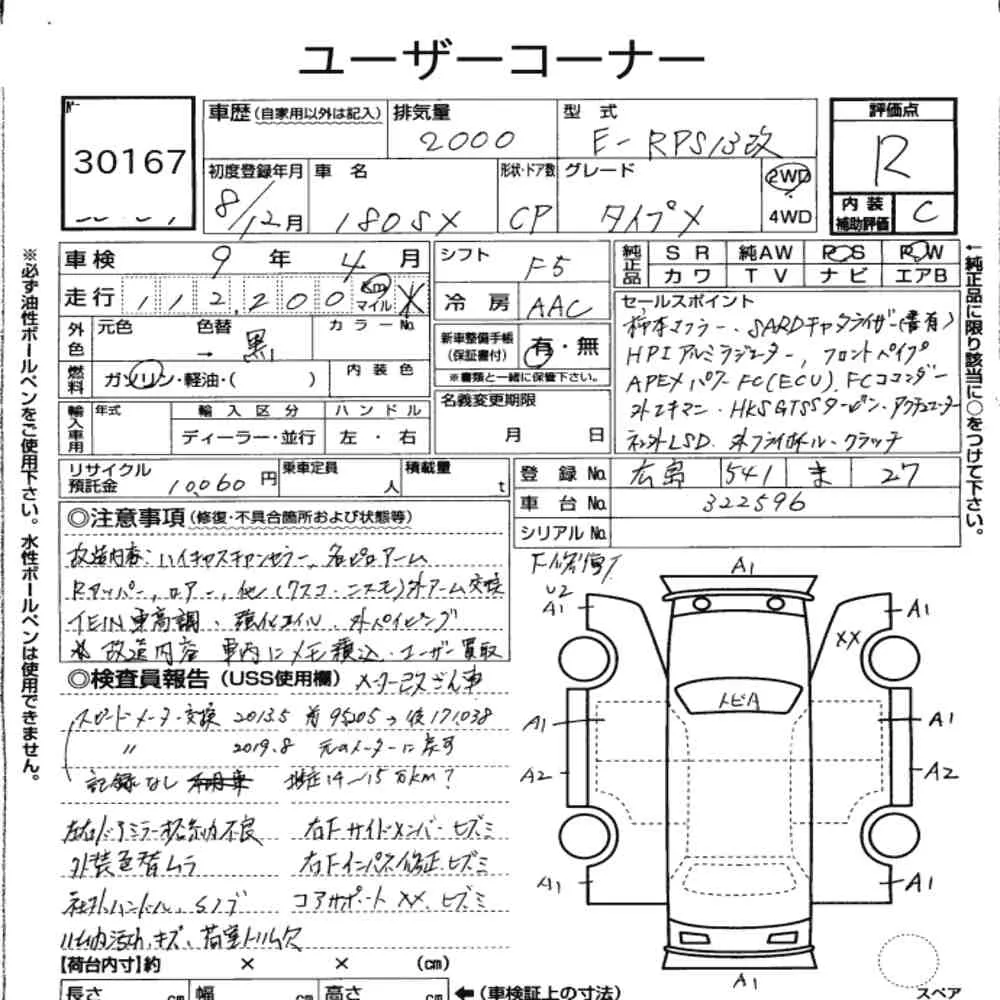 ユーザーコーナー
№
30167
車歴 (自家用以外は記入)
排気量
2000
型式
E-RPS13改
評価点
R
内装補助評価
C
初度登録年月
8/12月
車名
180SX
形状・ドア数
CP
グレード
タイプX
2WD
4WD
車検 9年 4月
シフト
F5
純正品
SR 純AW PS PW
カワ TV ナビ エアB
走行 112,200 Km マイル
冷房 AAC
セールスポイント
柿本マフラー、SARDキャタライザー(書有)
HPIアルミラジエーター、フロントパイプ
APEXパワーFC(ECU)、FCコマンダー
外エキマニ・HKSGTSSタービン・アクチュエーター
社外LSD 外フライホイール・クラッチ
外色
元色
色替
→ 黒
カラーNo.
内装色
新車整備手帳(保証書付) 有・無
※書類と一緒に保管下さい。
燃料 ガソリン・軽油・( )
名義変更期限
月 日
輸入車用
年式
輸入区分
ディーラー・並行
ハンドル
左・右
リサイクル預託金 10,060円
乗車定員
人
積載量
t
登録No. 広島 541 ま 27
車台No. 322596
シリアルNo.
◎注意事項 (修復・不具合箇所および状態等)
改造内容:ハイキャスキャンセラー、各ピロアーム
Rアッパー、ロアー、他(クスコ・ニスモ)外アーム交換
TEIN車高調、強化コイル、外パイピング
※改造内容 車内にメモ積込・ユーザー買取
◎検査員報告 (USS使用欄) メーター改ざん車
スピードメーター交換 2013.5 前95205→後171,038
〃 2019.8 元のメーターに戻す
記録なし 推定14~15万km?
左右ドアミラー格納不良 右Fサイドメンバーヒズミ
外装色替ムラ 右Fインパネ修正、ヒズミ
社外ハンドル、Sノブ コアサポートXX、ヒズミ
内汚れ、キズ、荷室トリム欠
【荷台内寸】約 × × (cm)
長さ cm 幅 cm 高さ cm ←(車検証上の寸法)
※必ず油性ボールペンをご使用下さい。水性ボールペンは使用できません。
←純正品に限り該当に○をつけて下さい。
F修復
U2
A1
A1
A1
XX
トビA
A1
A1
A2
A2
A1
A1
A1
スペア